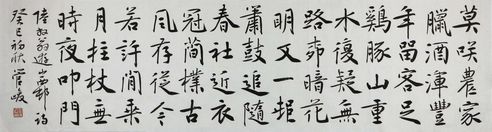 莫咲農家
臘酒渾豐
年留客足
雞豚山重
水復疑無
路柳暗花
明又一邨
蕭鼓追隨
春社近衣
冠簡樸古
風存從今
若許閑乘
月拄杖無
時夜叩門
陸放翁遊山西邨詩
癸巳初秋管峻